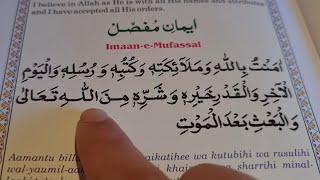 I believe in Allah as He is with all His names and attributes
and I have accepted all His orders.
ایمان مفصّل
Imaan-e-Mufassal
اٰمَنْتُ بِاللّٰهِ وَمَلَآئِكَتِهٖ وَكُتُبِهٖ وَرُسُلِهٖ وَالْيَوْمِ
الْاٰخِرِ وَالْقَدْرِ خَيْرِهٖ وَشَرِّهٖ مِنَ اللّٰهِ تَعَالٰى
وَالْبَعْثِ بَعْدَ الْمَوْتِ
Aamantu billa aikatihee wa kutubihi wa rusulihi
wal-yaumil-aa khai sharrihi minal-